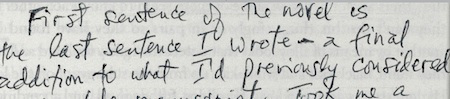 First sentence of the novel is
the last sentence I wrote - a final
addition to what I'd previously considered
manuscript. Took me a